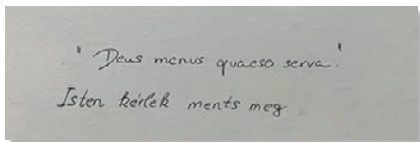 "Deus menus quaeso serva."
Isten kérlek ments meg